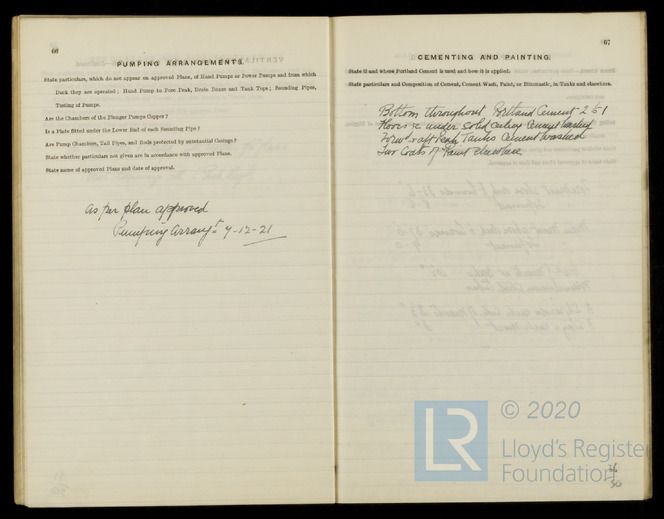 66
PUMPING ARRANGEMENTS.
State particulars, which do not appear on approved Plans, of Hand Pumps or Power Pumps and from which
Deck they are operated; Hand Pump to Fore Peak, Drain Boxes and Tank Tops; Sounding Pipes,
Testing of Pumps.
Are the Chambers of the Plunger Pumps Copper?
Is a Plate fitted under the Lower End of each Sounding Pipe?
Are Pump Chambers, Tail Pipes, and Rods protected by substantial Casings?
State whether particulars not given are in accordance with approved Plans.
State name of approved Plans and date of approval.
as per plan approved
Pumping Arrangt 7-12-21
67
CEMENTING AND PAINTING.
State if and where Portland Cement is used and how it is applied.
State particulars and Composition of Cement, Cement Wash, Paint, or Bitumastic, in Tanks and elsewhere.
Bottom throughout Portland Cement 2 to 1
Floors &c under solid ceiling Cement washed
Forwd & aft Peak Tanks Cement washed
Two Coats of Paint elsewhere
LR © 2020
Lloyd's Register
Foundation
36
50